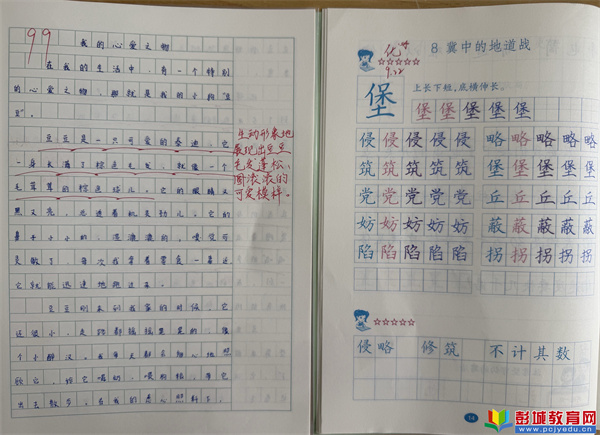 99
我的心爱之物
在我的生活中,有一个特别
的心爱之物,那就是我的小狗“豆
豆”。
豆豆是一只可爱的泰迪,它
一身长满了棕色毛发,就像一个
毛茸茸的棕色球儿。它的眼睛又
黑又亮,总透着机灵劲儿,它的
鼻子小小的,湿漉漉的,嗅觉可
灵敏了。每次我拿着零食一靠近
它就能迅速地跑过来。
豆豆刚来到我家的时候,它
还很小,走路都摇摇晃晃的,像
个小醉汉。我每天都会细心地照
顾它,给它喂奶、喂狗粮,带它
出去散步。在我的悉心照料下,
生动形象地
展现出豆豆
毛发蓬松、
圆滚滚的
可爱模样。
8 冀中的地道战
优
9.22
上长下短,底横伸长。
堡 堡 堡 堡 堡 堡
侵 侵 侵 侵 侵 略 略 略 略 略
筑 筑 筑 筑 筑 堡 堡 堡 堡 堡
党 党 党 党 党 丘 丘 丘 丘 丘
妨 妨 妨 妨 妨 蔽 蔽 蔽 蔽 蔽
陷 陷 陷 陷 陷 拐 拐 拐 拐 拐
侵略 修筑 不计其数
14
彭城教育网
www.pcjyedu.cn